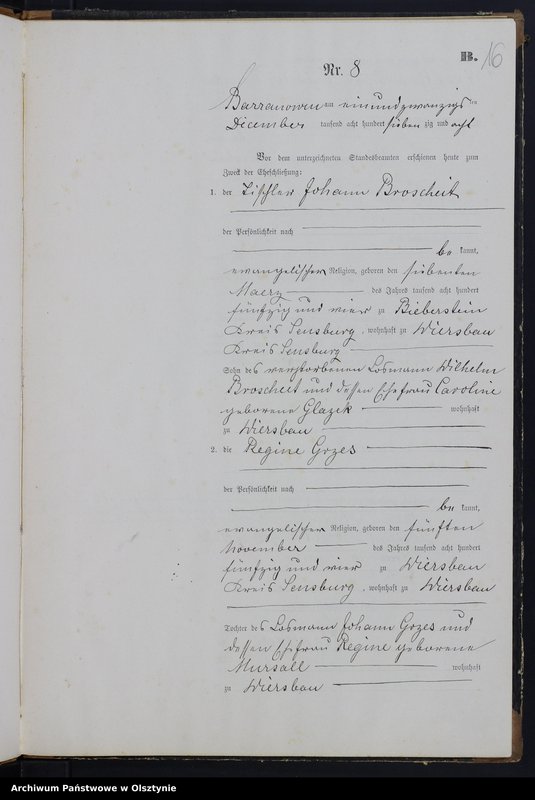 B. 16
Nr. 8
Barranowen am einundzwanzigsten
Dicember tausend acht hundert siebenzig und acht
Vor dem unterzeichneten Standesbeamten erschienen heute zum
Zweck der Eheschließung:
1. der Tischler Johann Broscheit
der Persönlichkeit nach
bekannt,
evangelischer Religion, geboren den siebenten
Maerz des Jahres tausend acht hundert
fünfzig und vier zu Bieberstein
Kreis Sensburg, wohnhaft zu Wiersbau
Kreis Sensburg
Sohn des verstorbenen Losmann Wilhelm
Broscheit und dessen Ehefrau Caroline
geborene Glazek wohnhaft
zu Wiersbau
2. die Regine Grzes
der Persönlichkeit nach
bekannt,
evangelischer Religion, geboren den fünften
November des Jahres tausend acht hundert
fünfzig und vier zu Wiersbau
Kreis Sensburg, wohnhaft zu Wiersbau
Tochter des Losmann Johann Grzes und
dessen Ehefrau Regine geborene
Mursall wohnhaft
zu Wiersbau
Archiwum Państwowe w Olsztynie